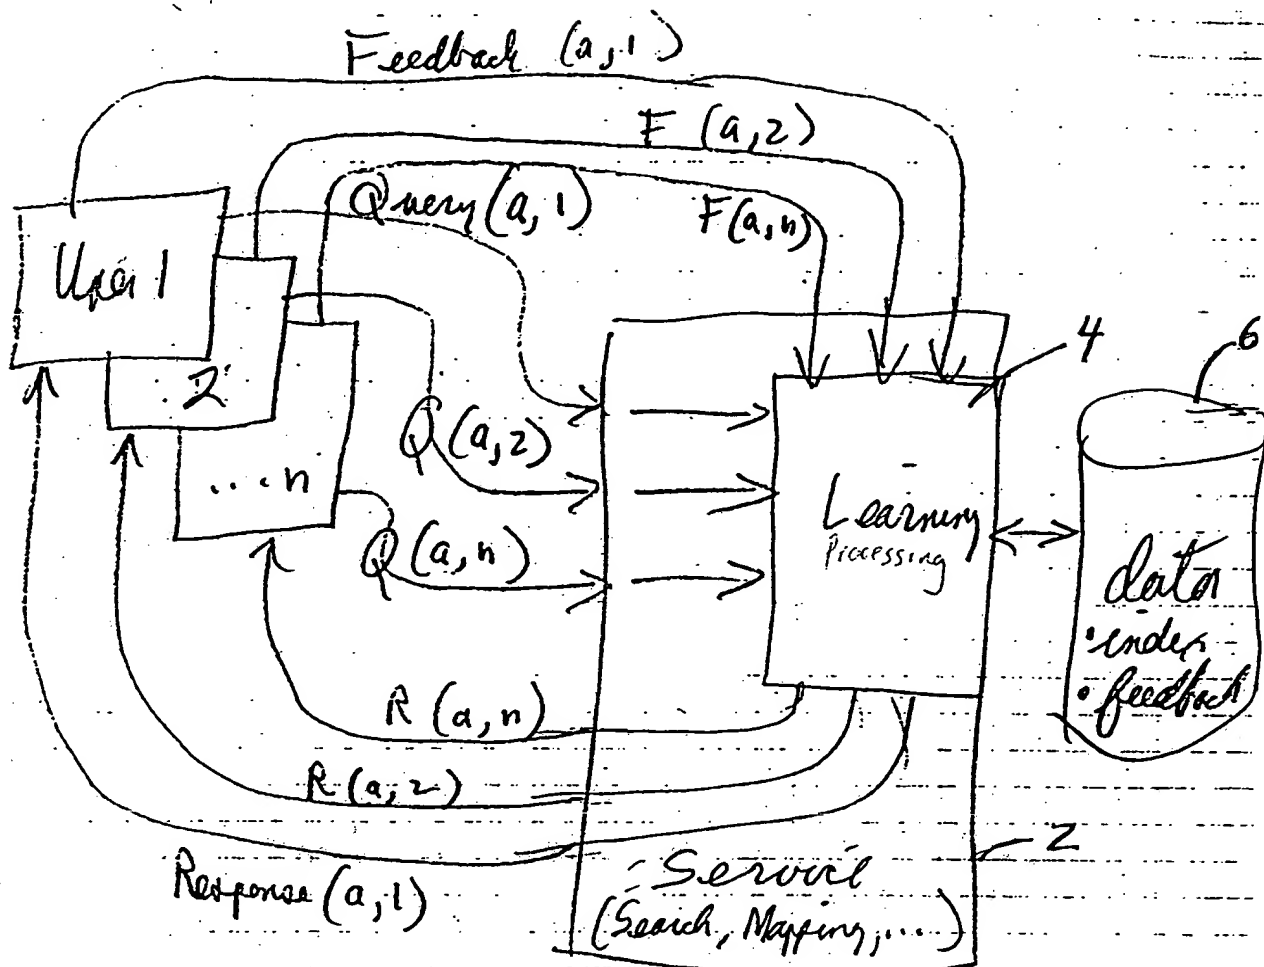 Feedback (a,1)
F (a,2)
Query (a,1)
F(a,n)
User 1
2
... n
Q (a,2)
Q (a,n)
4
6
Learning
Processing
data
• index
• feedback
R (a,n)
R (a,2)
Response (a,1)
2
Service
(Search, Mapping, ...)